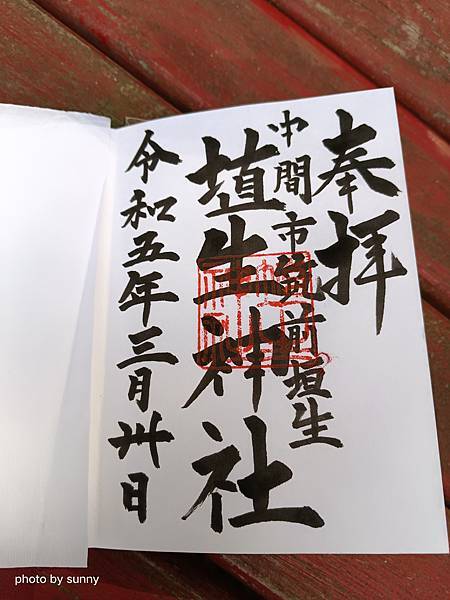 奉拝
中間市筑前垣生
埴生神社
令和五年三月卅日
photo by sunny